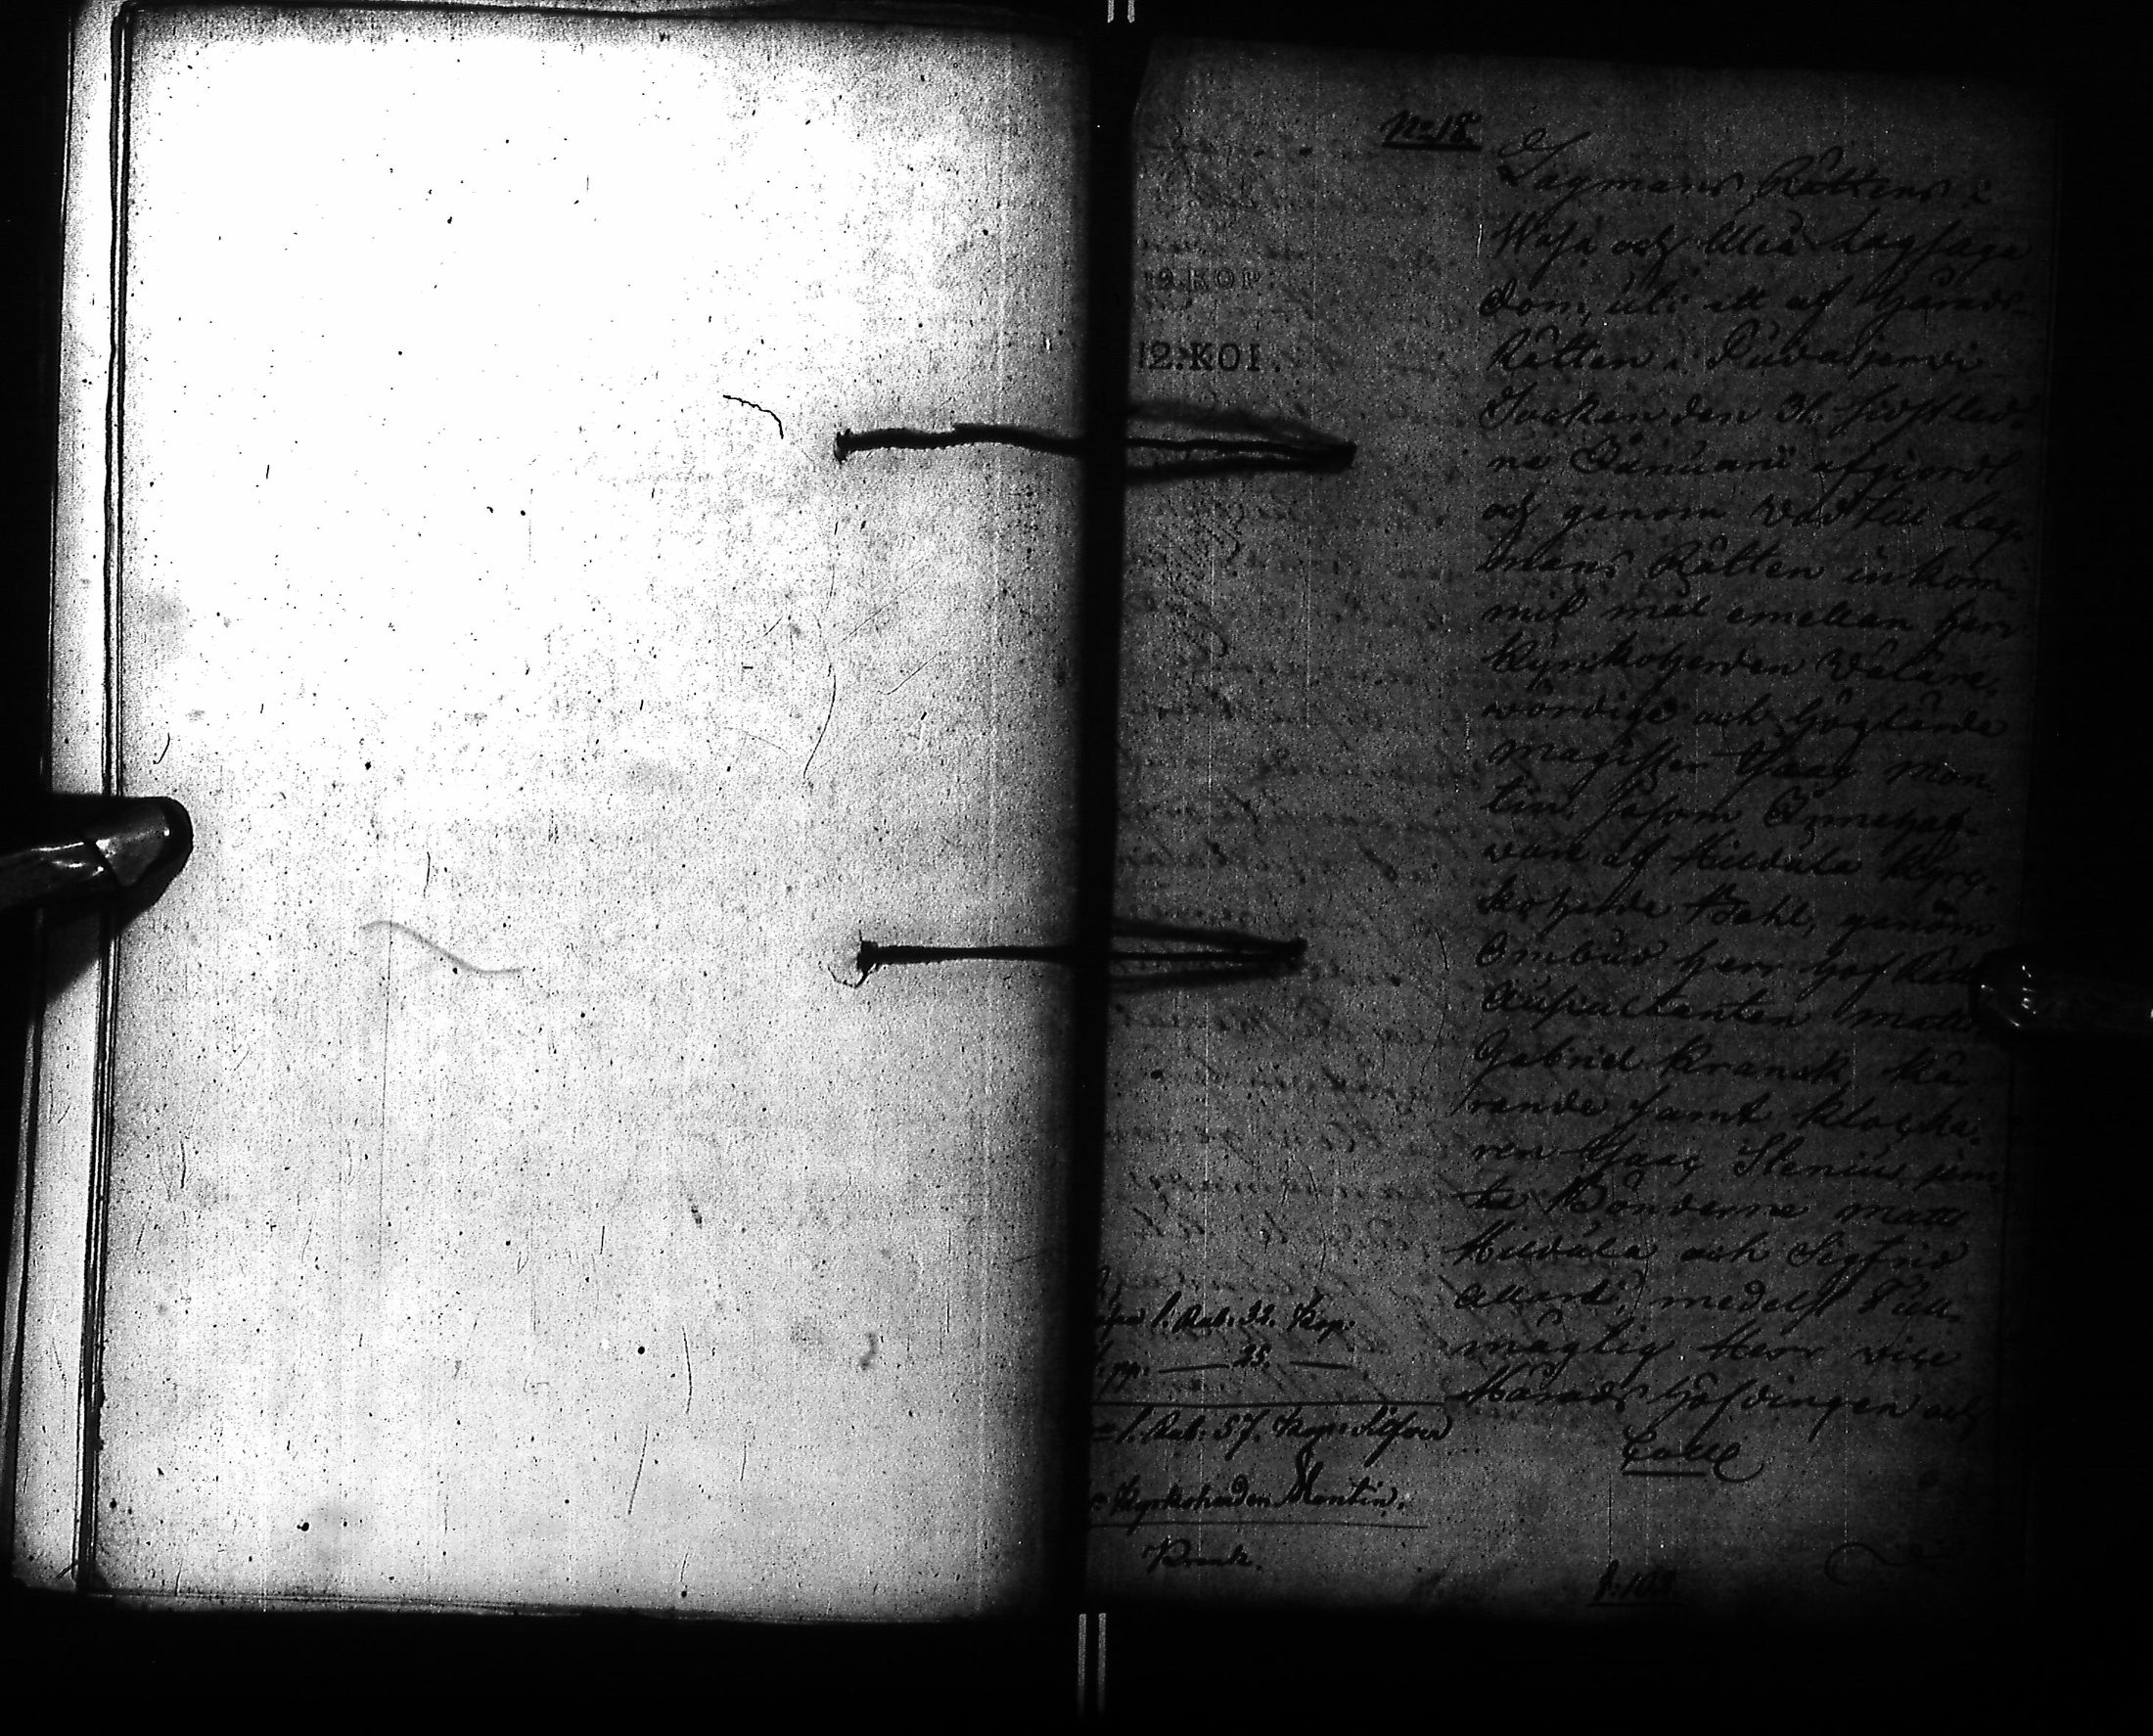 No 18.
Lagmans Rättens i
Wasa och Uleå Lagsagu
dom, uti ett af Härads-
Rätten i Pudasjervi
Socken den 31. sidstled-
ne Januarii afgjordt
och genom vad till Lag-
mans Rätten inkom-
mit mål emellan Herr
Kyrkoherden Väläre-
vördige och Höglärde
Magister Isaac Mon-
tin såsom Innehaf-
vare af Kuivala Kyrc-
koherde Bohl, genom
Ombud Herr Hof Rätts
Auscultanten Matts
Gabriel Kranck Kä-
rande samt Klocka-
ren Isaac Stenius, jem-
te Bönderne Matts
Kuivala och Sigfrid
medelst Full-
mägtig Herr Vice
Härads Höfdingen och
19.KOP.
12.KOP.
1. Rub. 32. Kop.
25.
1. Rub. 57. Kop. Silfver
Kyrkoherden Montin.
Kranck.